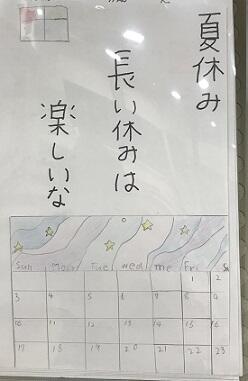 夏休み
長い休みは
楽しいな
Sun Mon Tue Wed me Fri Sa
1 2
3 4 5 6 7 8 9
10 11 12 13 14 15 16
17 18 19 20 21 22 23